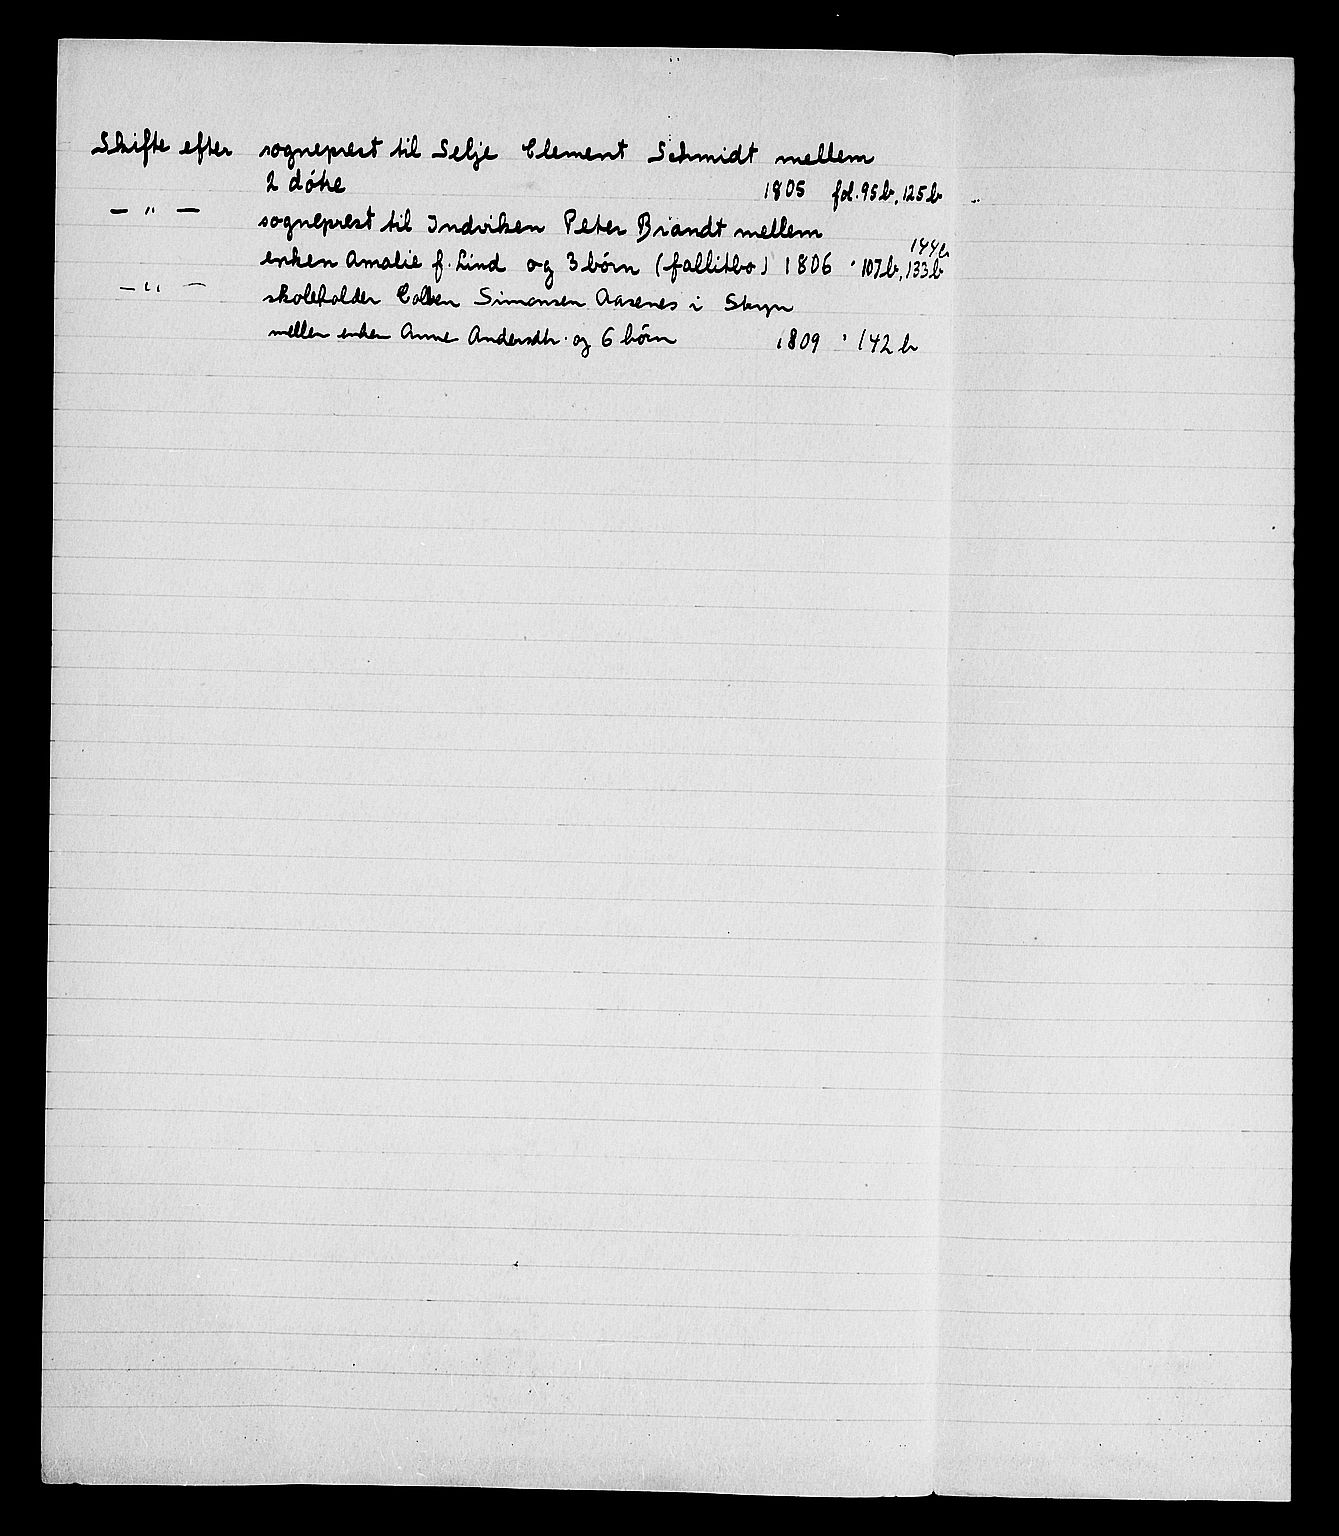 Skifte efter sogneprest til Selje Clement Schmidt mellem
2 døtre 1805 fol. 95b, 125b
— " — sogneprest til Indviken Peter Brandt mellem
144b
enken Amalie f. Lind og 3 børn (fallitbo) 1806 " 107b, 133b
— " — skoleholder Simonsen Aasenes i Stryn
mellem enken Anne Andersdtr. og 6 børn 1809 " 142b